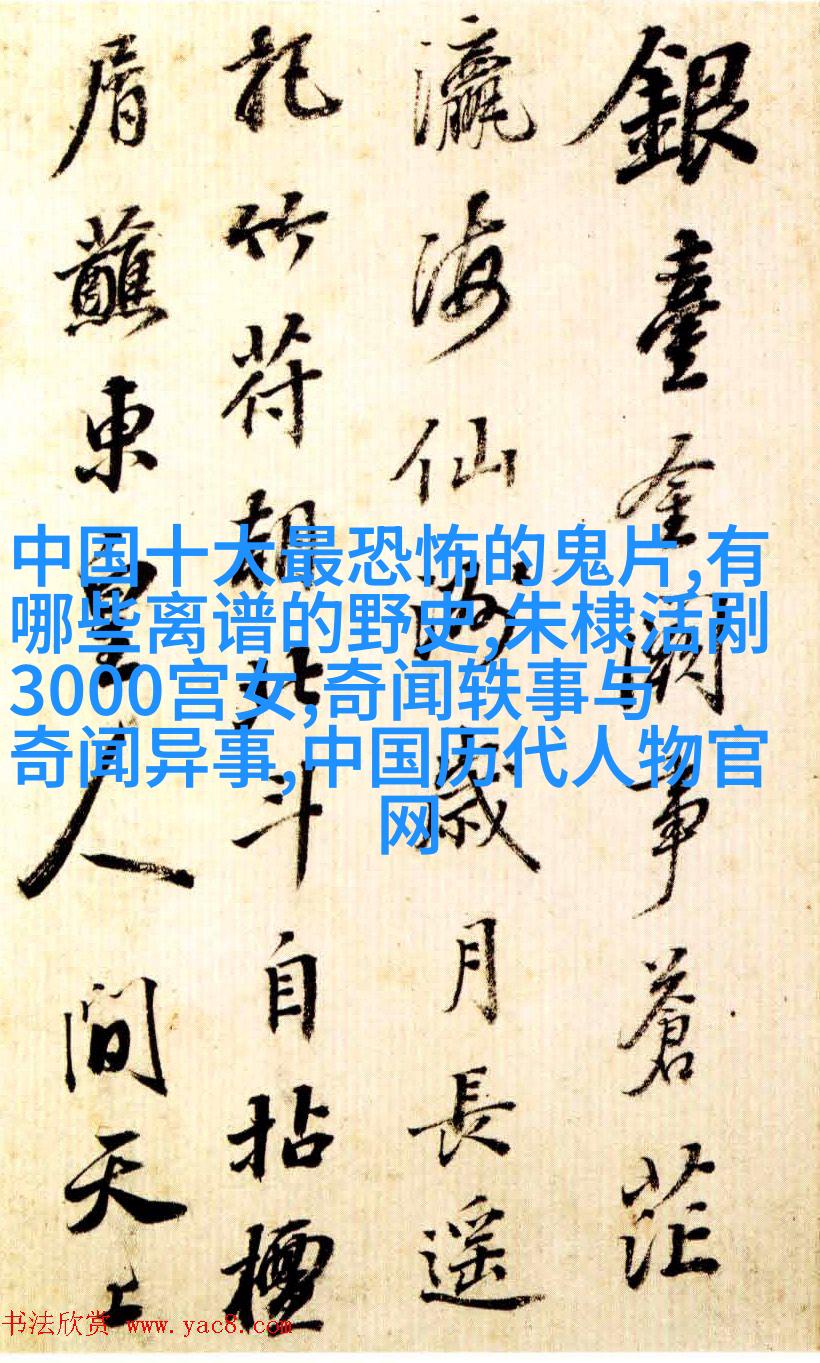 銀臺金闕事蒼茫
瀛海仙洲歲月長遥
竹符朝北斗自拈檀
屑蘸東皇人間天上
中国十大最恐怖的鬼片,有
哪些离谱的野史,朱棣活剐
3000宫女,奇闻轶事与
奇闻异事,中国历代人物官
网
书法欣赏 www.yac8.com